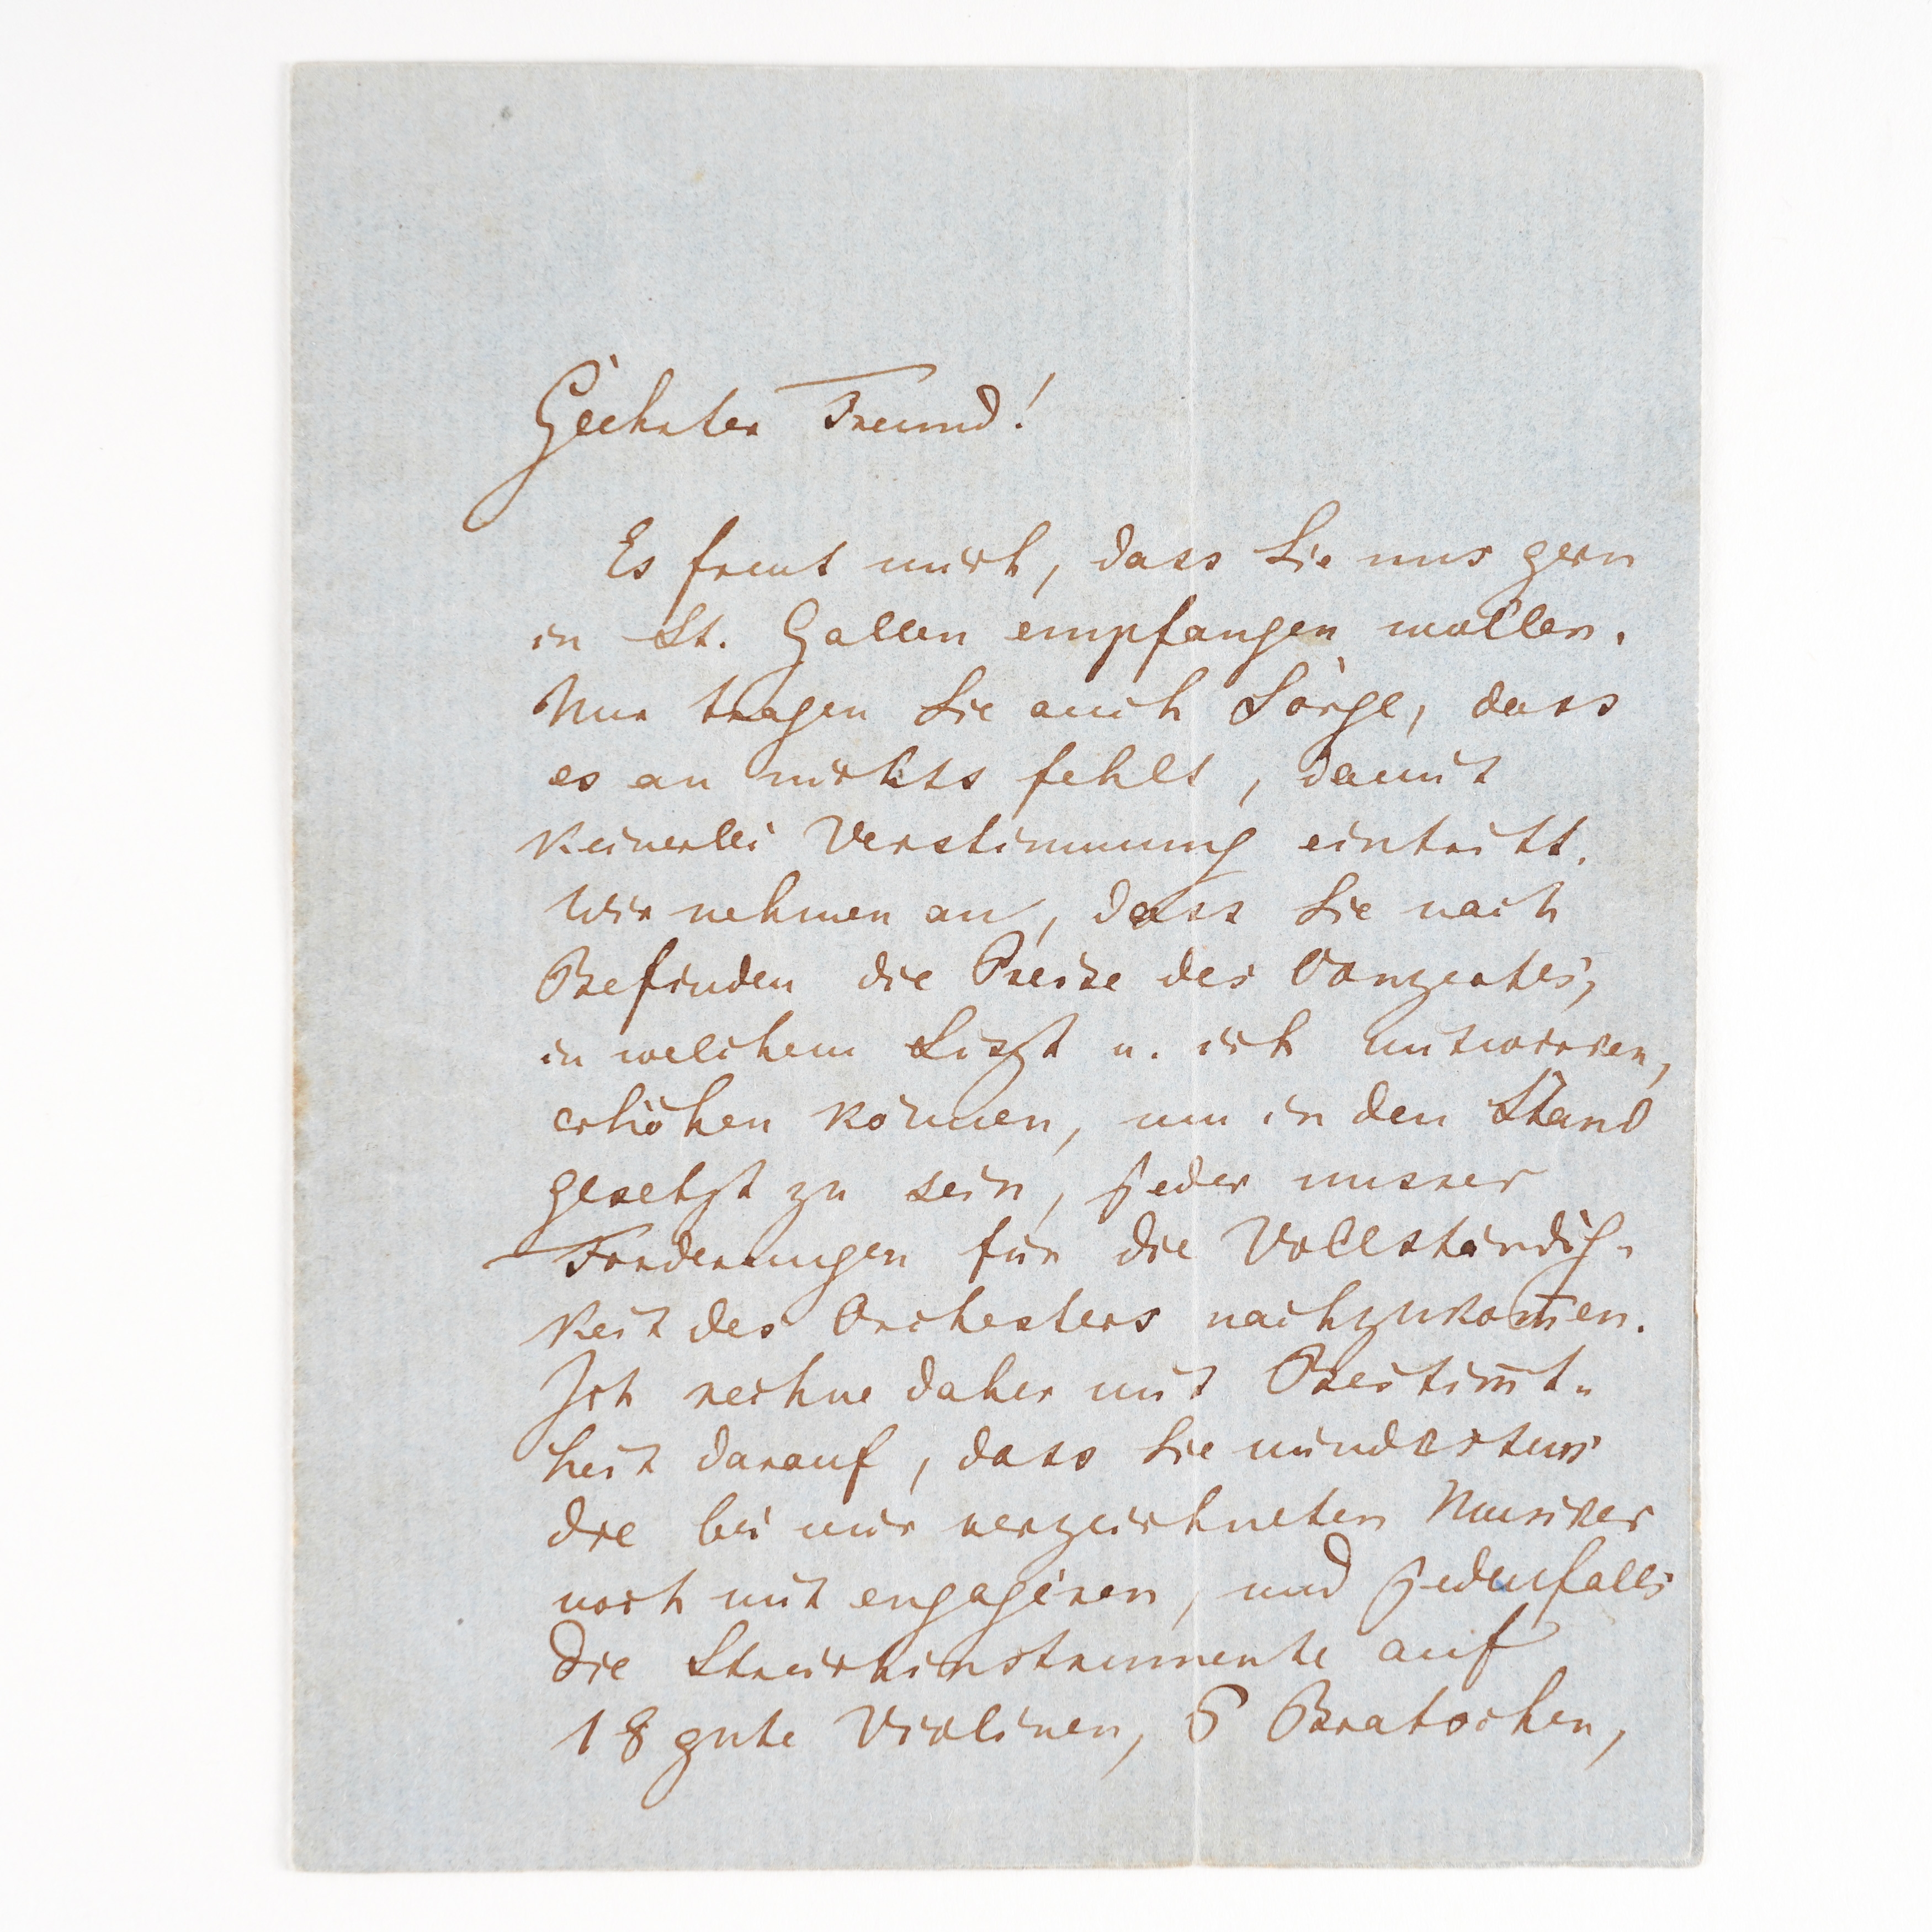 Geehrter Freund!
Es freut mich, dass Sie uns gern
in St. Gallen empfangen wollen.
Nur tragen Sie auch Sorge, dass
es an nichts fehlt, damit
keinerlei Verstimmung eintritt.
Wir nehmen an, dass Sie nach
Befinden die Preise des Conzertes,
in welchem Liszt u. ich mitwirken,
erhöhen können, um in den Stand
gesetzt zu sein, jeder unsrer
Forderungen für die Vollständig-
keit des Orchesters nachzukom̄en.
Ich rechne daher mit Bestim̄t-
heit darauf, dass Sie mindestens
die bei mir verzeichneten Musiker
noch mit engagiren, und jedenfalls
die Streichinstrumente auf
18 gute Violinen, 6 Bratschen,